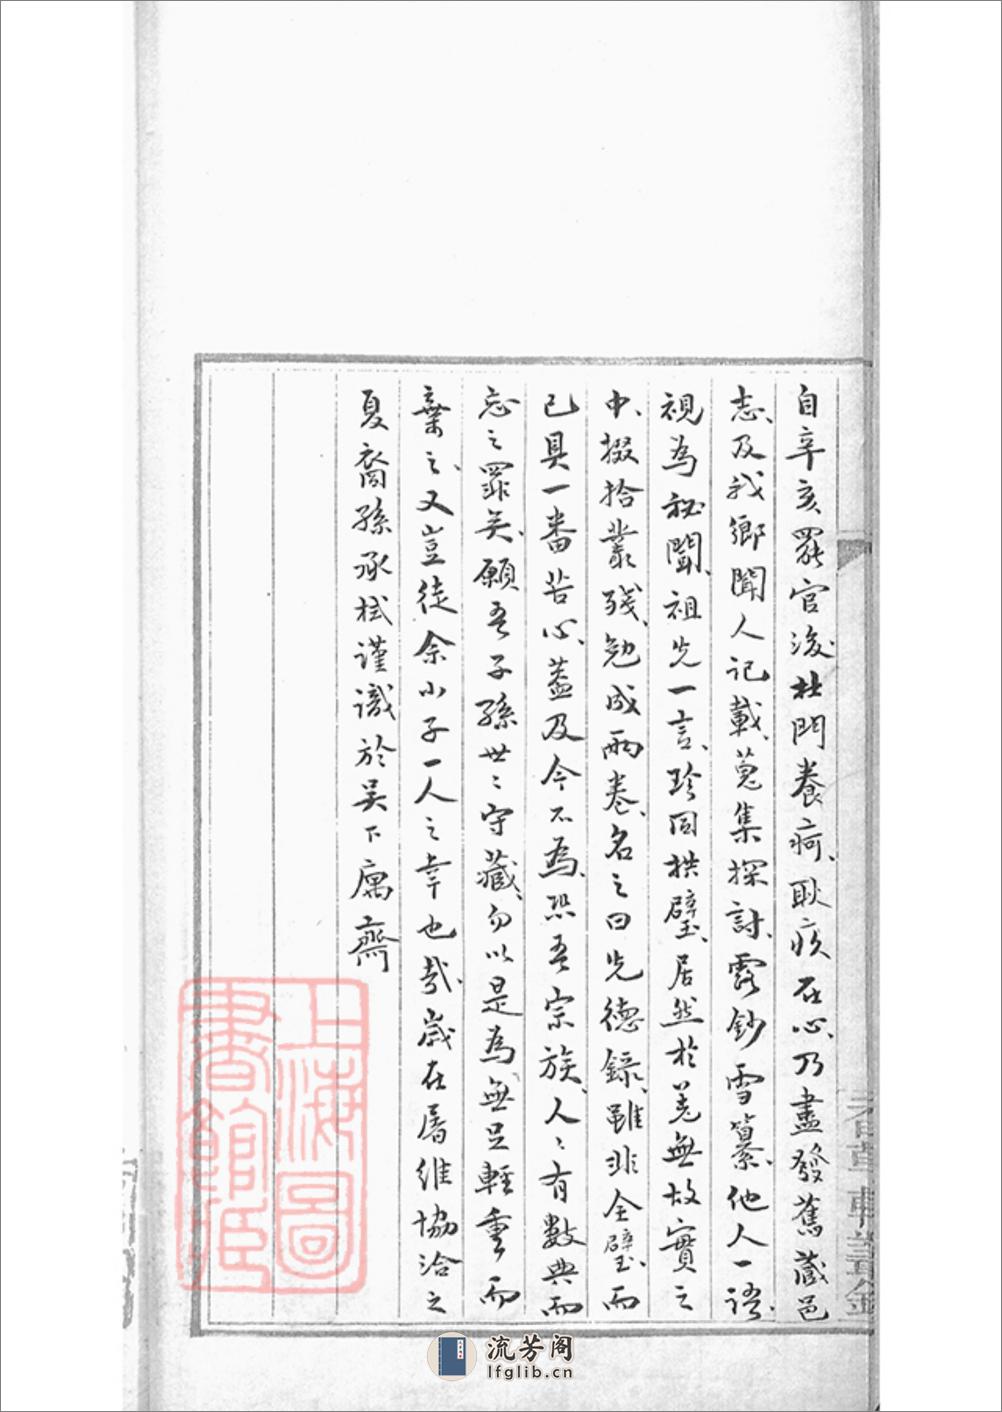 自辛亥罷官後杜門養疴耿疚在心乃盡發舊藏邑
志及我鄉聞人記載蒐集探討露鈔雪纂他人一語
視為祕聞祖先一言珍同拱璧居然於羌無故實之
中掇拾叢殘勉成兩卷名之曰先德錄雖非全璧而
已具一番苦心蓋及今不為恐吾宗族人〻有數典而
忘之罪矣願吾子孫世〻守藏勿以是為無足輕重而
棄之又豈徒余小子一人之幸也哉歲在屠維協洽之
夏裔孫承栻謹識於吳下寓齋
上海圖
書館臧
流芳阁
lfglib.cn